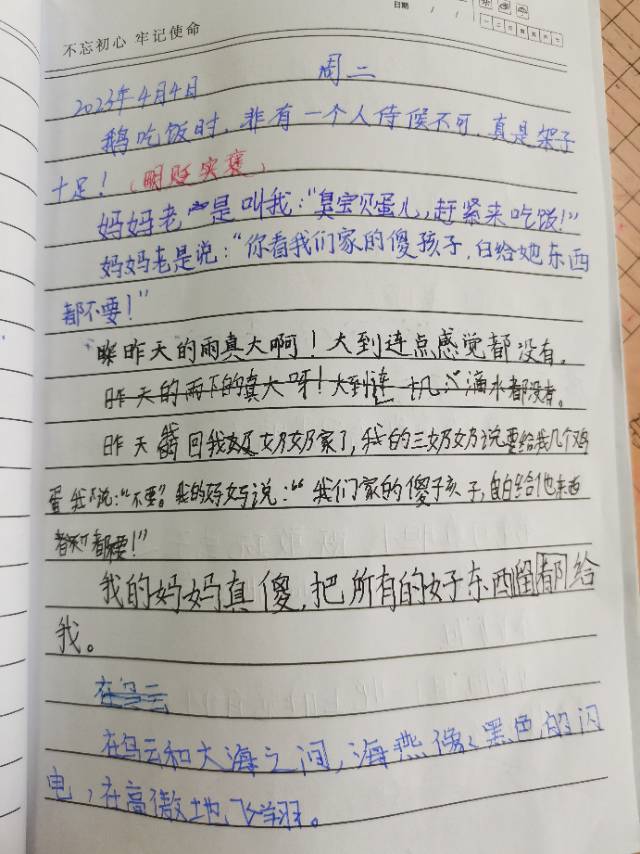 不忘初心 牢记使命
日期 / /
2023年4月4日 周二
鹅吃饭时，非有一个人侍候不可，真是架子
十足！（明贬实褒）
妈妈老是叫我：“臭宝贝蛋儿，赶紧来吃饭！”
妈妈老是说：“你看我们家的傻孩子，白给她东西
都不要！”
昨天的雨真大啊！大到连点感觉都没有。
昨天的雨下的真大呀！大到连一机滴水都没有。
昨天回我奶奶家了，我的三奶奶说要给我几个鸡
蛋我说：“不要。”我的妈妈说：“我们家的傻子孩子，白给他东西
都不要！”
我的妈妈真傻，把所有的好子东西留都给
我。
在乌云
在乌云和大海之间，海燕像黑色的闪
电，在高傲地飞翔。